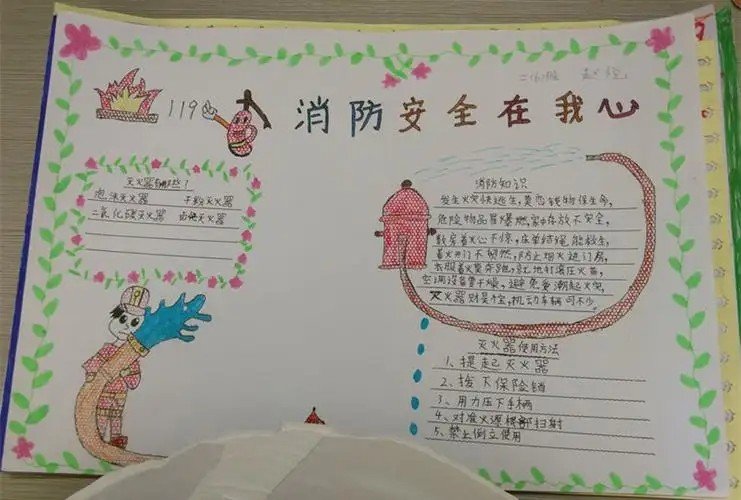 119
消防安全在我心
灭火器有哪些?
泡沫灭火器 干粉灭火器
二氧化碳灭火器 灭火器
消防知识
发生火灾快逃生,莫恋钱物保生命,
危险物品易爆燃,家中存放不安全,
数层着火心不惊,床单结绳能救生,
着火开门不 然,防止烟火进门房,
衣服着火莫奔跑,就地打滚压火苗,
空调设备要干燥,避免受潮起火灾,
灭火器则是宝,机动车辆可不少。
灭火器使用方法
1、提起灭火器
2、拔下保险销
3、用力压下手柄
4、对准火源根部扫射
5、禁止倒立使用